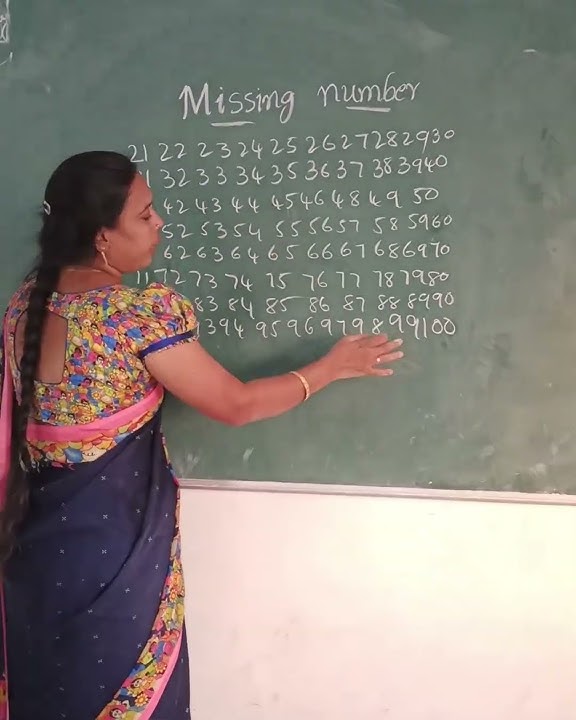 Missing number
21 22 23 24 25 26 27 28 29 30
32 33 34 35 36 37 38 39 40
42 43 44 45 46 48 49 50
52 53 54 55 56 57 58 59 60
62 63 64 65 66 67 68 69 70
71 72 73 74 75 76 77 78 79 80
83 84 85 86 87 88 89 90
94 95 96 97 98 99 100